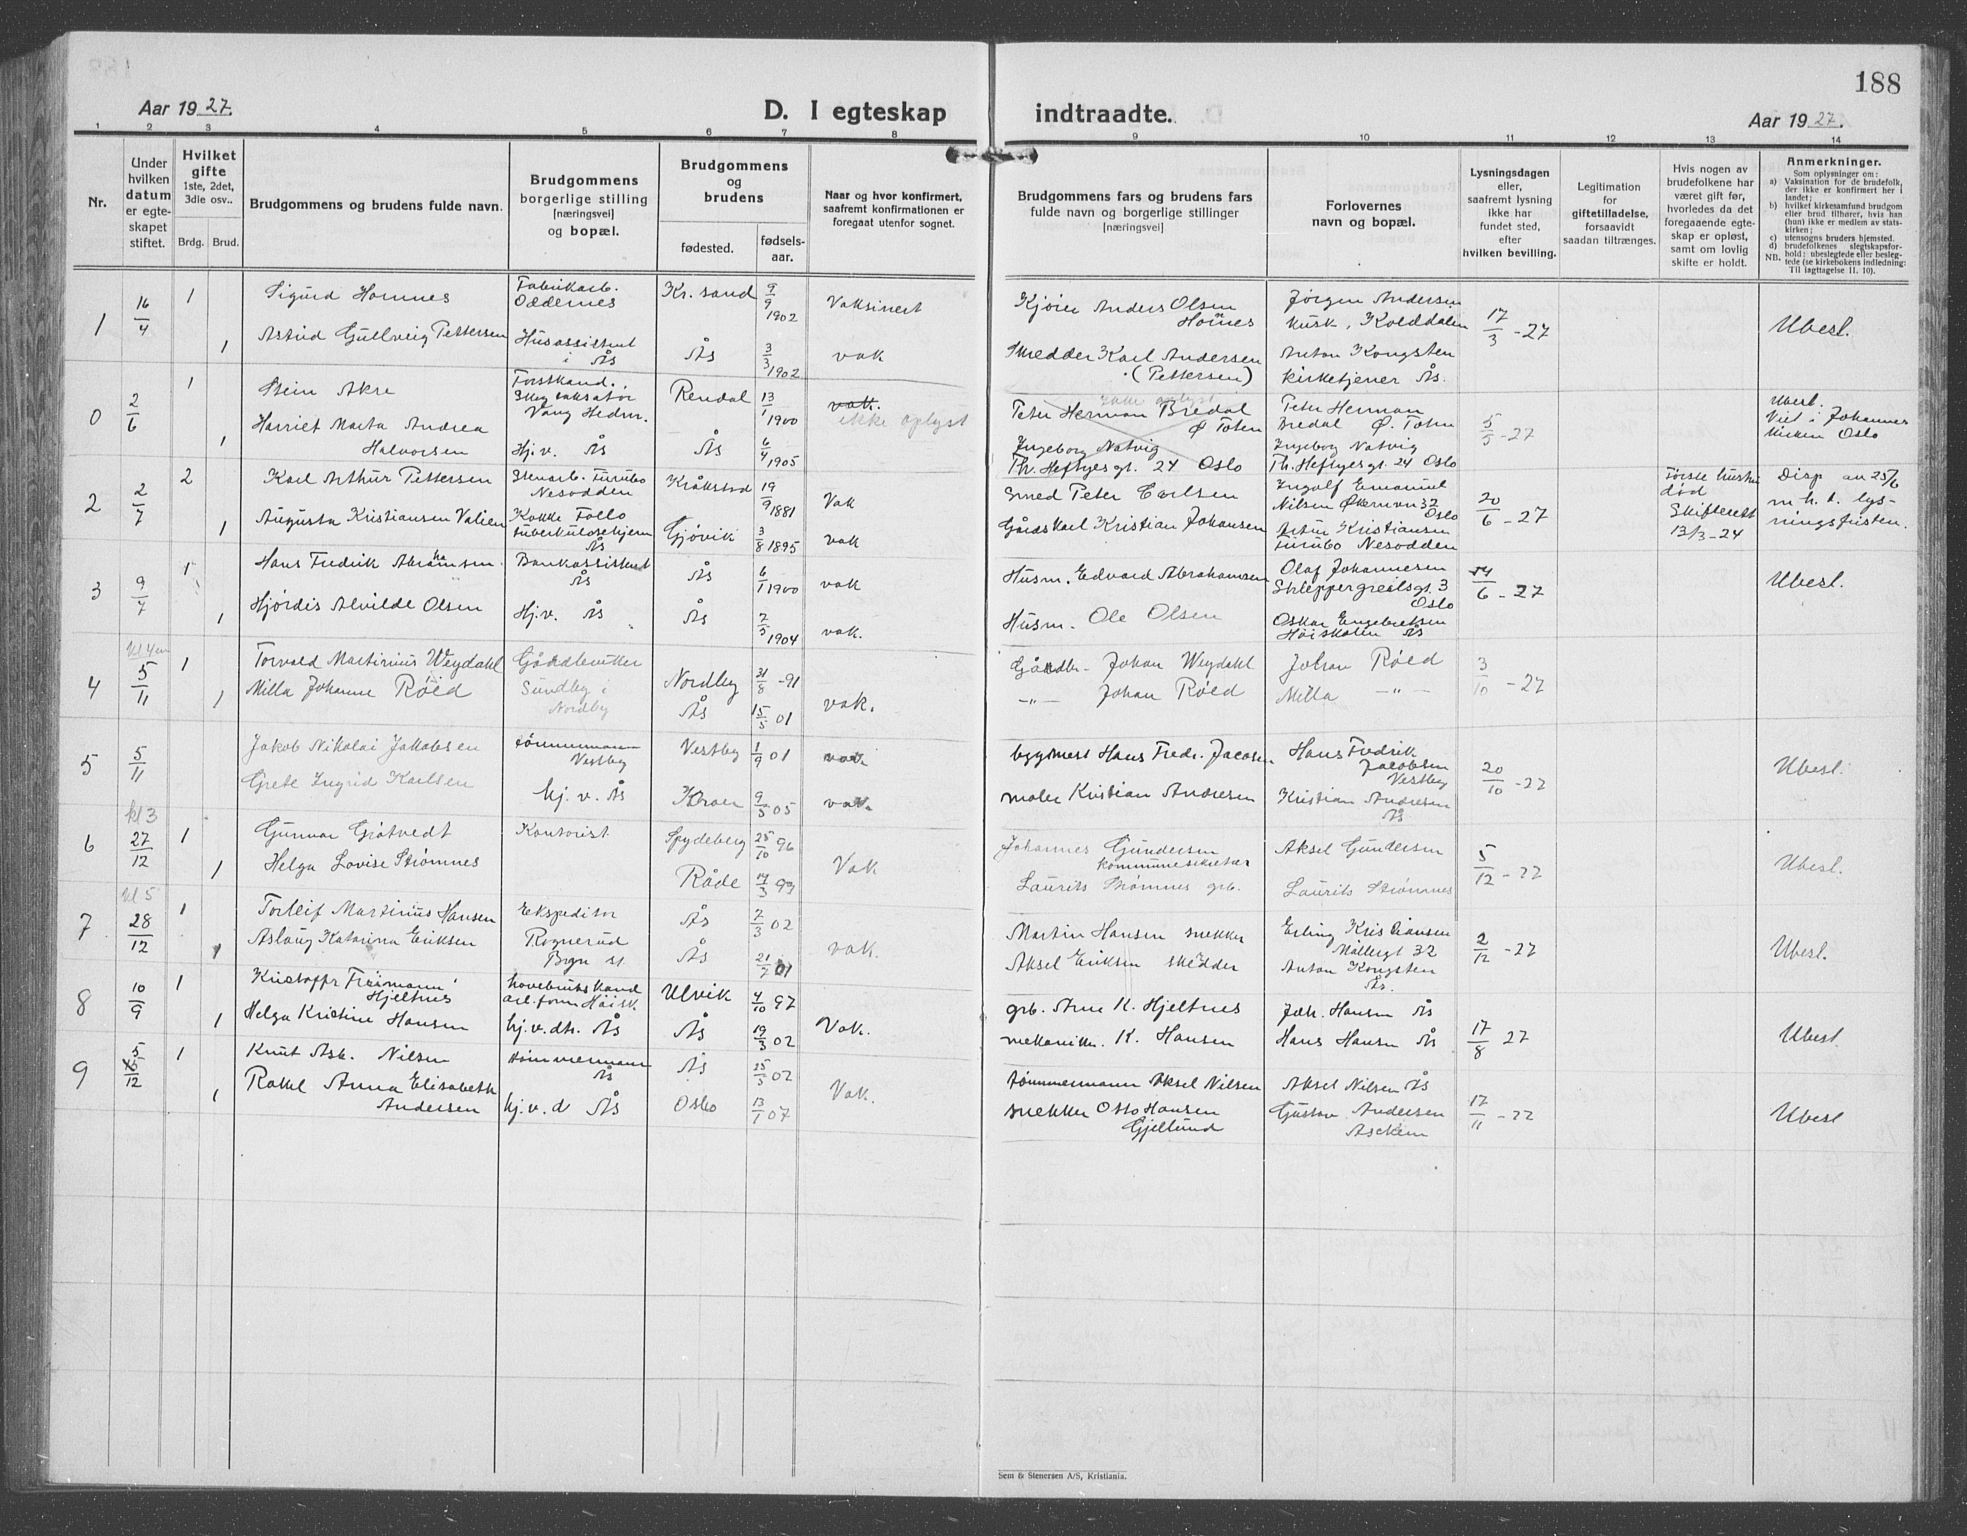 188
Aar 1927.
D. I egteskap
indtraadte.
Aar 1927.
1 2 3 4 5 6 7 8 9 10 11 12 13 14
Nr.
Under hvilken datum er egteskapet stiftet.
Hvilket gifte
1ste, 2det, 3die osv..
Brdg. Brud.
Brudgommens og brudens fulde navn.
Brudgommens borgerlige stilling [næringsvei] og bopæl.
Brudgommens og brudens
fødested.
fødsels-aar.
Naar og hvor konfirmert, saafremt konfirmationen er foregaat utenfor sognet.
Brudgommens fars og brudens fars fulde navn og borgerlige stillinger [næringsvei]
Forlovernes navn og bopæl.
Lysningsdagen eller, saafremt lysning ikke har fundet sted, efter hvilken bevilling.
Legitimation for giftetilladelse, forsaavidt saadan tiltrænges.
Hvis nogen av brudefolkene har været gift før, hvorledes da det foregaaende egteskap er opløst, samt om lovlig skifte er holdt.
Anmerkninger.
Som oplysninger om:
a) Vaksination for de brudefolk, der ikke er konfirmert her i landet;
b) hvilket kirkesamfund brudgom eller brud tilhører, hvis han (hun) ikke er medlem av statskirken;
c) utensogns bruders hjemsted.
d) brudefolkenes slegtskapsforhold: ubeslegtede eller beslegtede (se kirkebokens indledning:
NB. Til iagttagelse II. 10).
1 16/4 1 Sigurd Homnes Fabrikarb. Oddernes Kr.sand 9/9 1902 Vaksinert Anders Olsen Homnes Jørgen Andersen 17/3-27 Ubesl.
1 Astrid Gullveig Pettersen Husassistent i Ås Ås 3/3 1902 vak Skredder Karl Andersen (Pettersen) Anton Kongsten kirketjener Ås.
0 2/6 1 Stein Akre Forstkand. Vang Hedm. Rendal 13/1 1900 vak. ikke oplyst Peter Herman Bredal Ø Toten Peter Herman Bredal Ø. Toten 5/5-27 Ubesl. Viet i Johannes kirken Oslo
1 Harriet Marta Andrea Halvorsen Hj.v. Ås Ås 6/4 1905 Ingeborg Natvig Th. Heftyes gt. 24 Oslo Ingeborg Natvig Th. Heftyes gt. 24 Oslo
2 2/7 2 Karl Arthur Pettersen Stenarb. Furubo Nesodden Kråkstad 19/9 1881 Vak Smed Peter Carlsen Ingolf Emanuel Nilsen Økernvn 32 Oslo 20/6-27 Første hustru død Skifterett 13/3-24 Disp av 25/6 m.h.t. lysningsfristen.
1 Augusta Kristiansen Valien Kokke Follo tuberkulosehjem Ås Gjøvik 3/8 1895 vak Gårdskarl Kristian Johansen Kristiansen Furubo Nesodden
3 9/7 1 Hans Fredrik Abrahamsen Bankassistent Ås Ås 6/1 1900 vak Husm. Edvard Abrahamsen Olaf Johannesen Schleppergrellsgt. 3 Oslo 6-27 Ubesl.
1 Hjørdis Alvilde Olsen Hj.v. Ås Ås 7/5 1904 vak. Husm. Ole Olsen Oskar Engebretsen Høiskolen Ås
kl 4 em
4 5/11 1 Torvald Martinius Weydahl Gårdbruker Sundby i Nordby Nordby 31/8-91 vak. Gårdbr. Johan Weydahl Johan Røed 3/10-27
1 Milla Johanne Røed Ås 15/5 01 -"- Johan Røed Milla -"-
5 5/11 Jakob Nikolai Jakobsen tømmermann Vestby Vestby 1/9 01 vak bygmest Hans Fredr. Jacobsen Hans Fredrik Jacobsen Vestby 20/10-27 Ubesl.
Grete Ingrid Karlsen hj.v. Ås Kroer 9/5 05 vak. maler Kristian Andresen Kristian Andresen Ås
kl 3
6 27/12 1 Gunnar Grøtvedt Kontorist Spydeberg 25/10 96 Vak Johannes Gundersen kommunesekretær Aksel Gundersen 5/12-27 Ubesl.
1 Helga Lovise Strømnes Råde 14/3 99 Laurits Strømnes grb. Laurits Strømnes
kl 5
7 28/12 1 Torleif Martinius Hansen Ekspeditør Rognerud Ås 7/3 02 vak. Martin Hansen snekker Erling Kristiansen Møllergt 32 2/12-27 Ubesl.
1 Aslaug Katarina Eriksen Ås 21/7 01 Aksel Eriksen skredder Anton Kongsten Ås.
8 10/9 1 Kristoffer Freimann Hjeltnes havebrukskand Ulvik 4/10 97 Vak. grb. Arne K. Hjeltnes Joh. Hansen Ås 17/8 27 Ubesl
1 Helga Kristine Hansen hj.v.dtr. Ås Ås 19/3 02 mekanikr. K. Hansen Hans Hansen Ås
9 5/12 1 Knut Ask. Nilsen tømmermann Ås Ås 25/5 02 Vak. tømmermann Aksel Nilsen Aksel Nilsen Ås 17/11-27 Ubesl
1 Rakel Anna Elisabeth Andersen hj.v.d Ås Oslo 13/1 07 snekker Otto Hansen Gjellund Gustav Andersen Askim
Sem & Stenersen A/S, Kristiania.